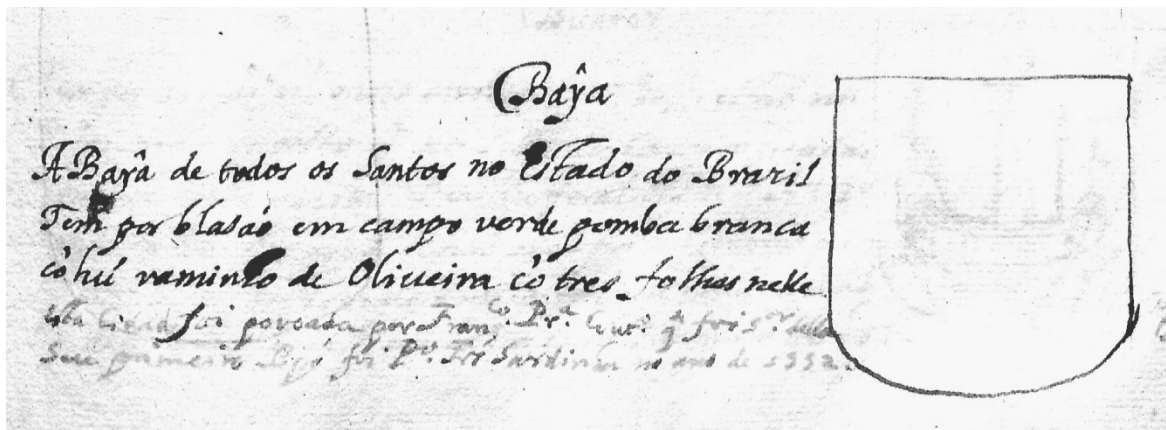 Baŷa
A Baŷa de todos os Santos no Estado do Brazil
Tem por blasaõ em campo verde pomba branca
cõ hũ raminho de Oliveira cõ tres folhas nelle
foi povoada por Fran.co Pr.a q foi s.r
Seu primeiro Bpõ foi P.o Frz Sardinha no ano de 1552.